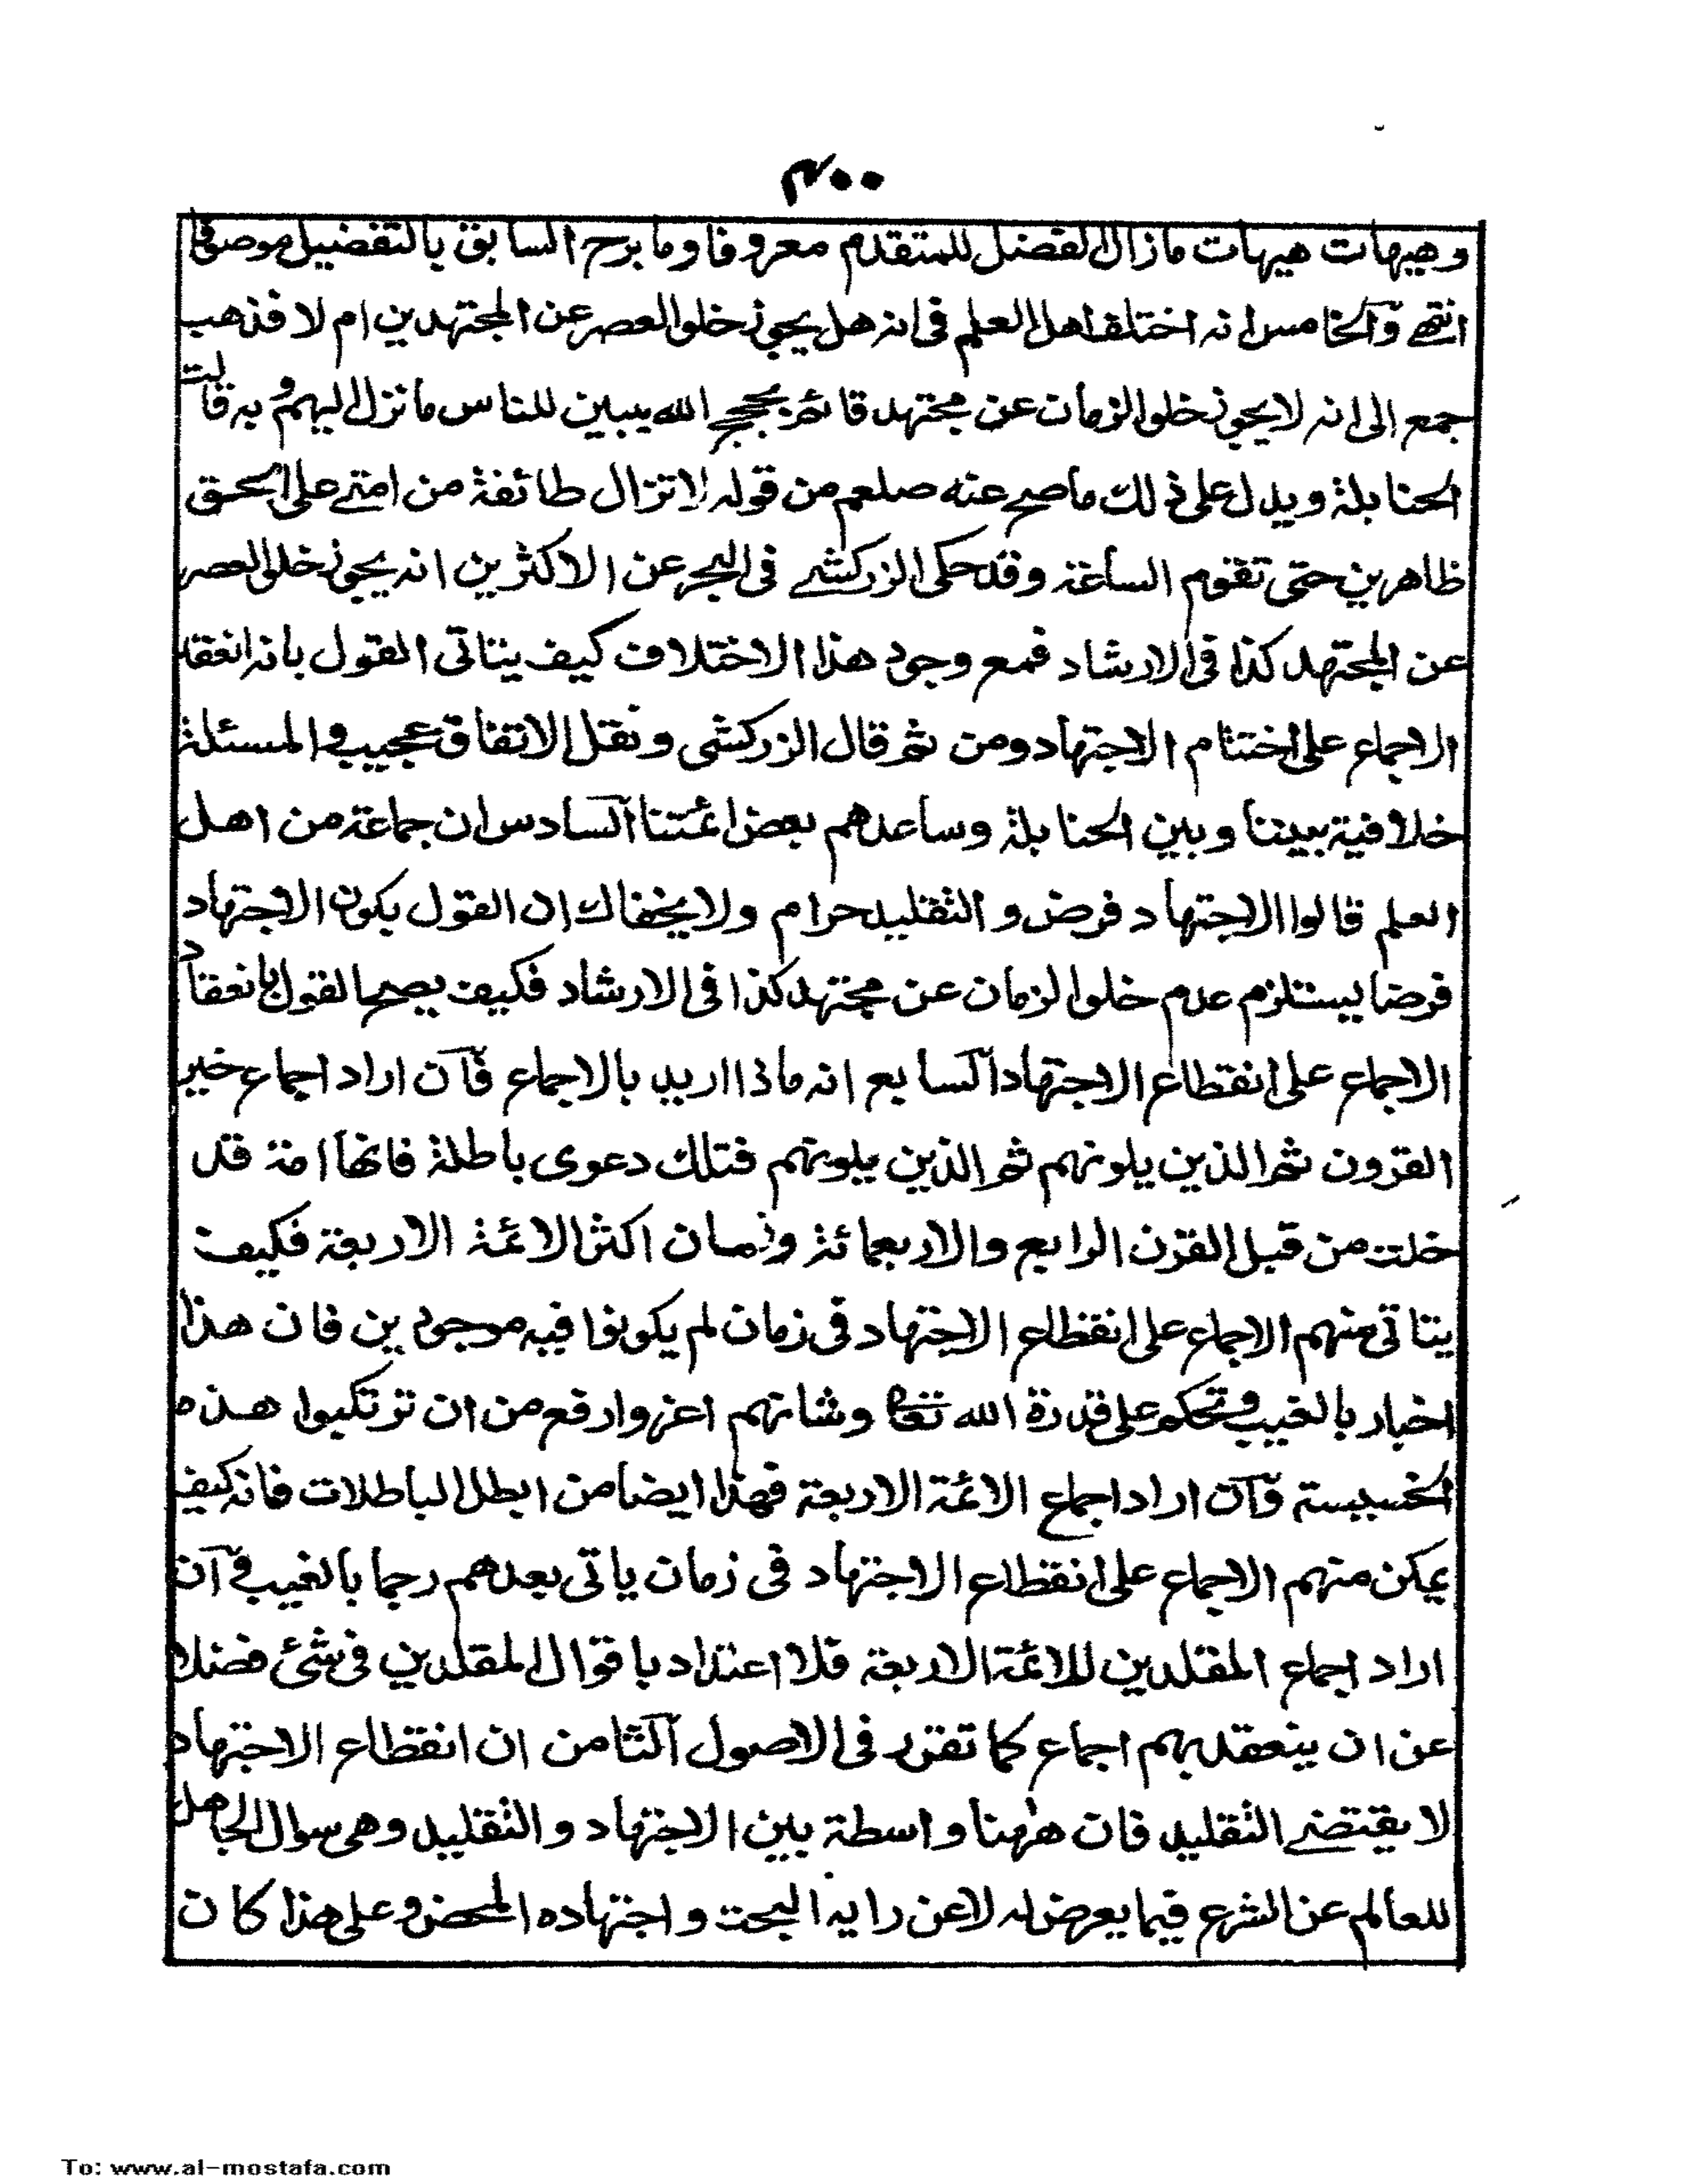 ۴۰۰
وهيهات هيهات مازال الفضل للمتقدم معروفا وما برح السابق بالتفضيل موصوفا
انتهى والخامس انه اختلف اهل العلم فى انه هل يجوز خلو العصر عن المجتهدين ام لا فذهب
جمع الى انه لا يجوز خلو الزمان عن مجتهد قائم بحجج الله يبين للناس ما نزل اليهم وبه قالت
الحنابلة ويدل على ذلك ما صح عنه صلعم من قوله لا تزال طائفة من امتى على الحق
ظاهرين حتى تقوم الساعة وقد حكى الزركشى فى البحر عن الاكثرين انه يجوز خلو العصر
عن المجتهد كذا فى الارشاد فمع وجود هذا الاختلاف كيف يتاتى القول بانه انعقد
الاجماع على اختتام الاجتهاد ومن ثم قال الزركشى ونقل الاتفاق عجيب والمسئلة
خلافية بيننا وبين الحنابلة وساعدهم بعض ائمتنا السادس ان جماعة من اهل
العلم قالوا الاجتهاد فرض والتقليد حرام ولا يخفاك ان القول بكون الاجتهاد
فرضا يستلزم عدم خلو الزمان عن مجتهد كذا فى الارشاد فكيف يصح القول بانعقاد
الاجماع على انقطاع الاجتهاد السابع انه ماذا اريد بالاجماع فان اراد اجماع خير
القرون ثم الذين يلونهم ثم الذين يلونهم فتلك دعوى باطلة فانها امة قد
خلت من قبل القرن الرابع والاربعمائة وزمان اكثر الائمة الاربعة فكيف
يتاتى منهم الاجماع على انقطاع الاجتهاد فى زمان لم يكونوا فيه موجودين فان هذا
اخبار بالغيب وتحكم على قدرة الله تعالى وشانهم اعز وارفع من ان ترتكبوا هذه
الخسيسة وان اراد اجماع الائمة الاربعة فهذا ايضا من ابطل الباطلات فانه كيف
يمكن منهم الاجماع على انقطاع الاجتهاد فى زمان ياتى بعدهم رجما بالغيب وان
اراد اجماع المقلدين للائمة الاربعة فلا اعتداد باقوال المقلدين فى شئ فضلا
عن ان ينعقد بهم اجماع كما تقرر فى الاصول الثامن ان انقطاع الاجتهاد
لا يقتضى التقليد فان ههنا واسطة بين الاجتهاد والتقليد وهى سوال الجاهل
للعالم عن الشرع فيما يعرض له لا عن رايه البحت واجتهاده المحض وعلى هذا كان
To: www.al-mostafa.com